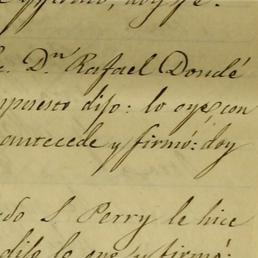 firmó, doy fe.
c. D.n Rafael Dondé
mpuesto dijo: lo oye, con
antecede y firmó: doy
edo S Perry le hice
dijo lo oye y firmó: